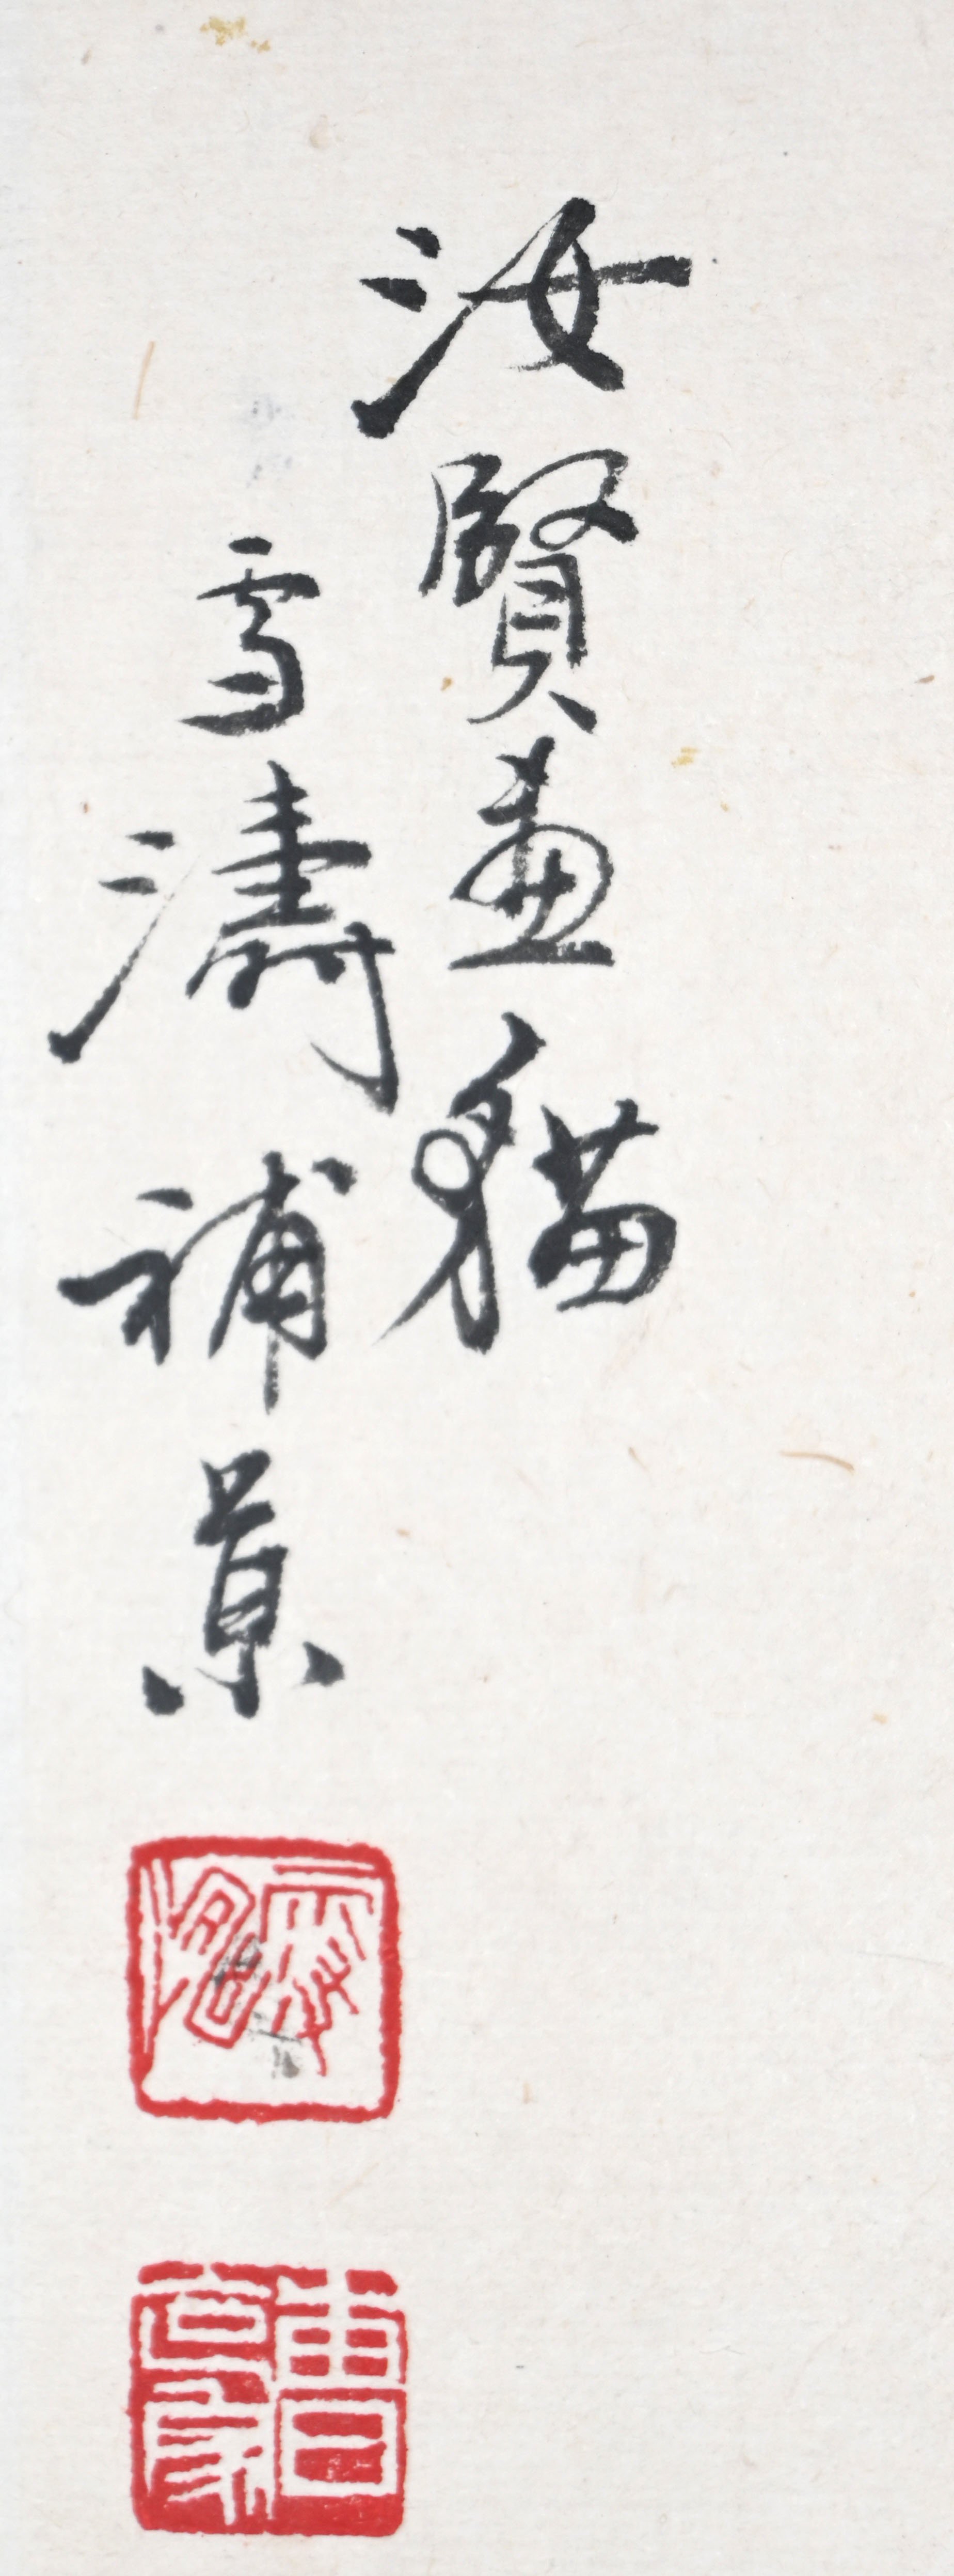 汝賢畫貓
雪濤補景